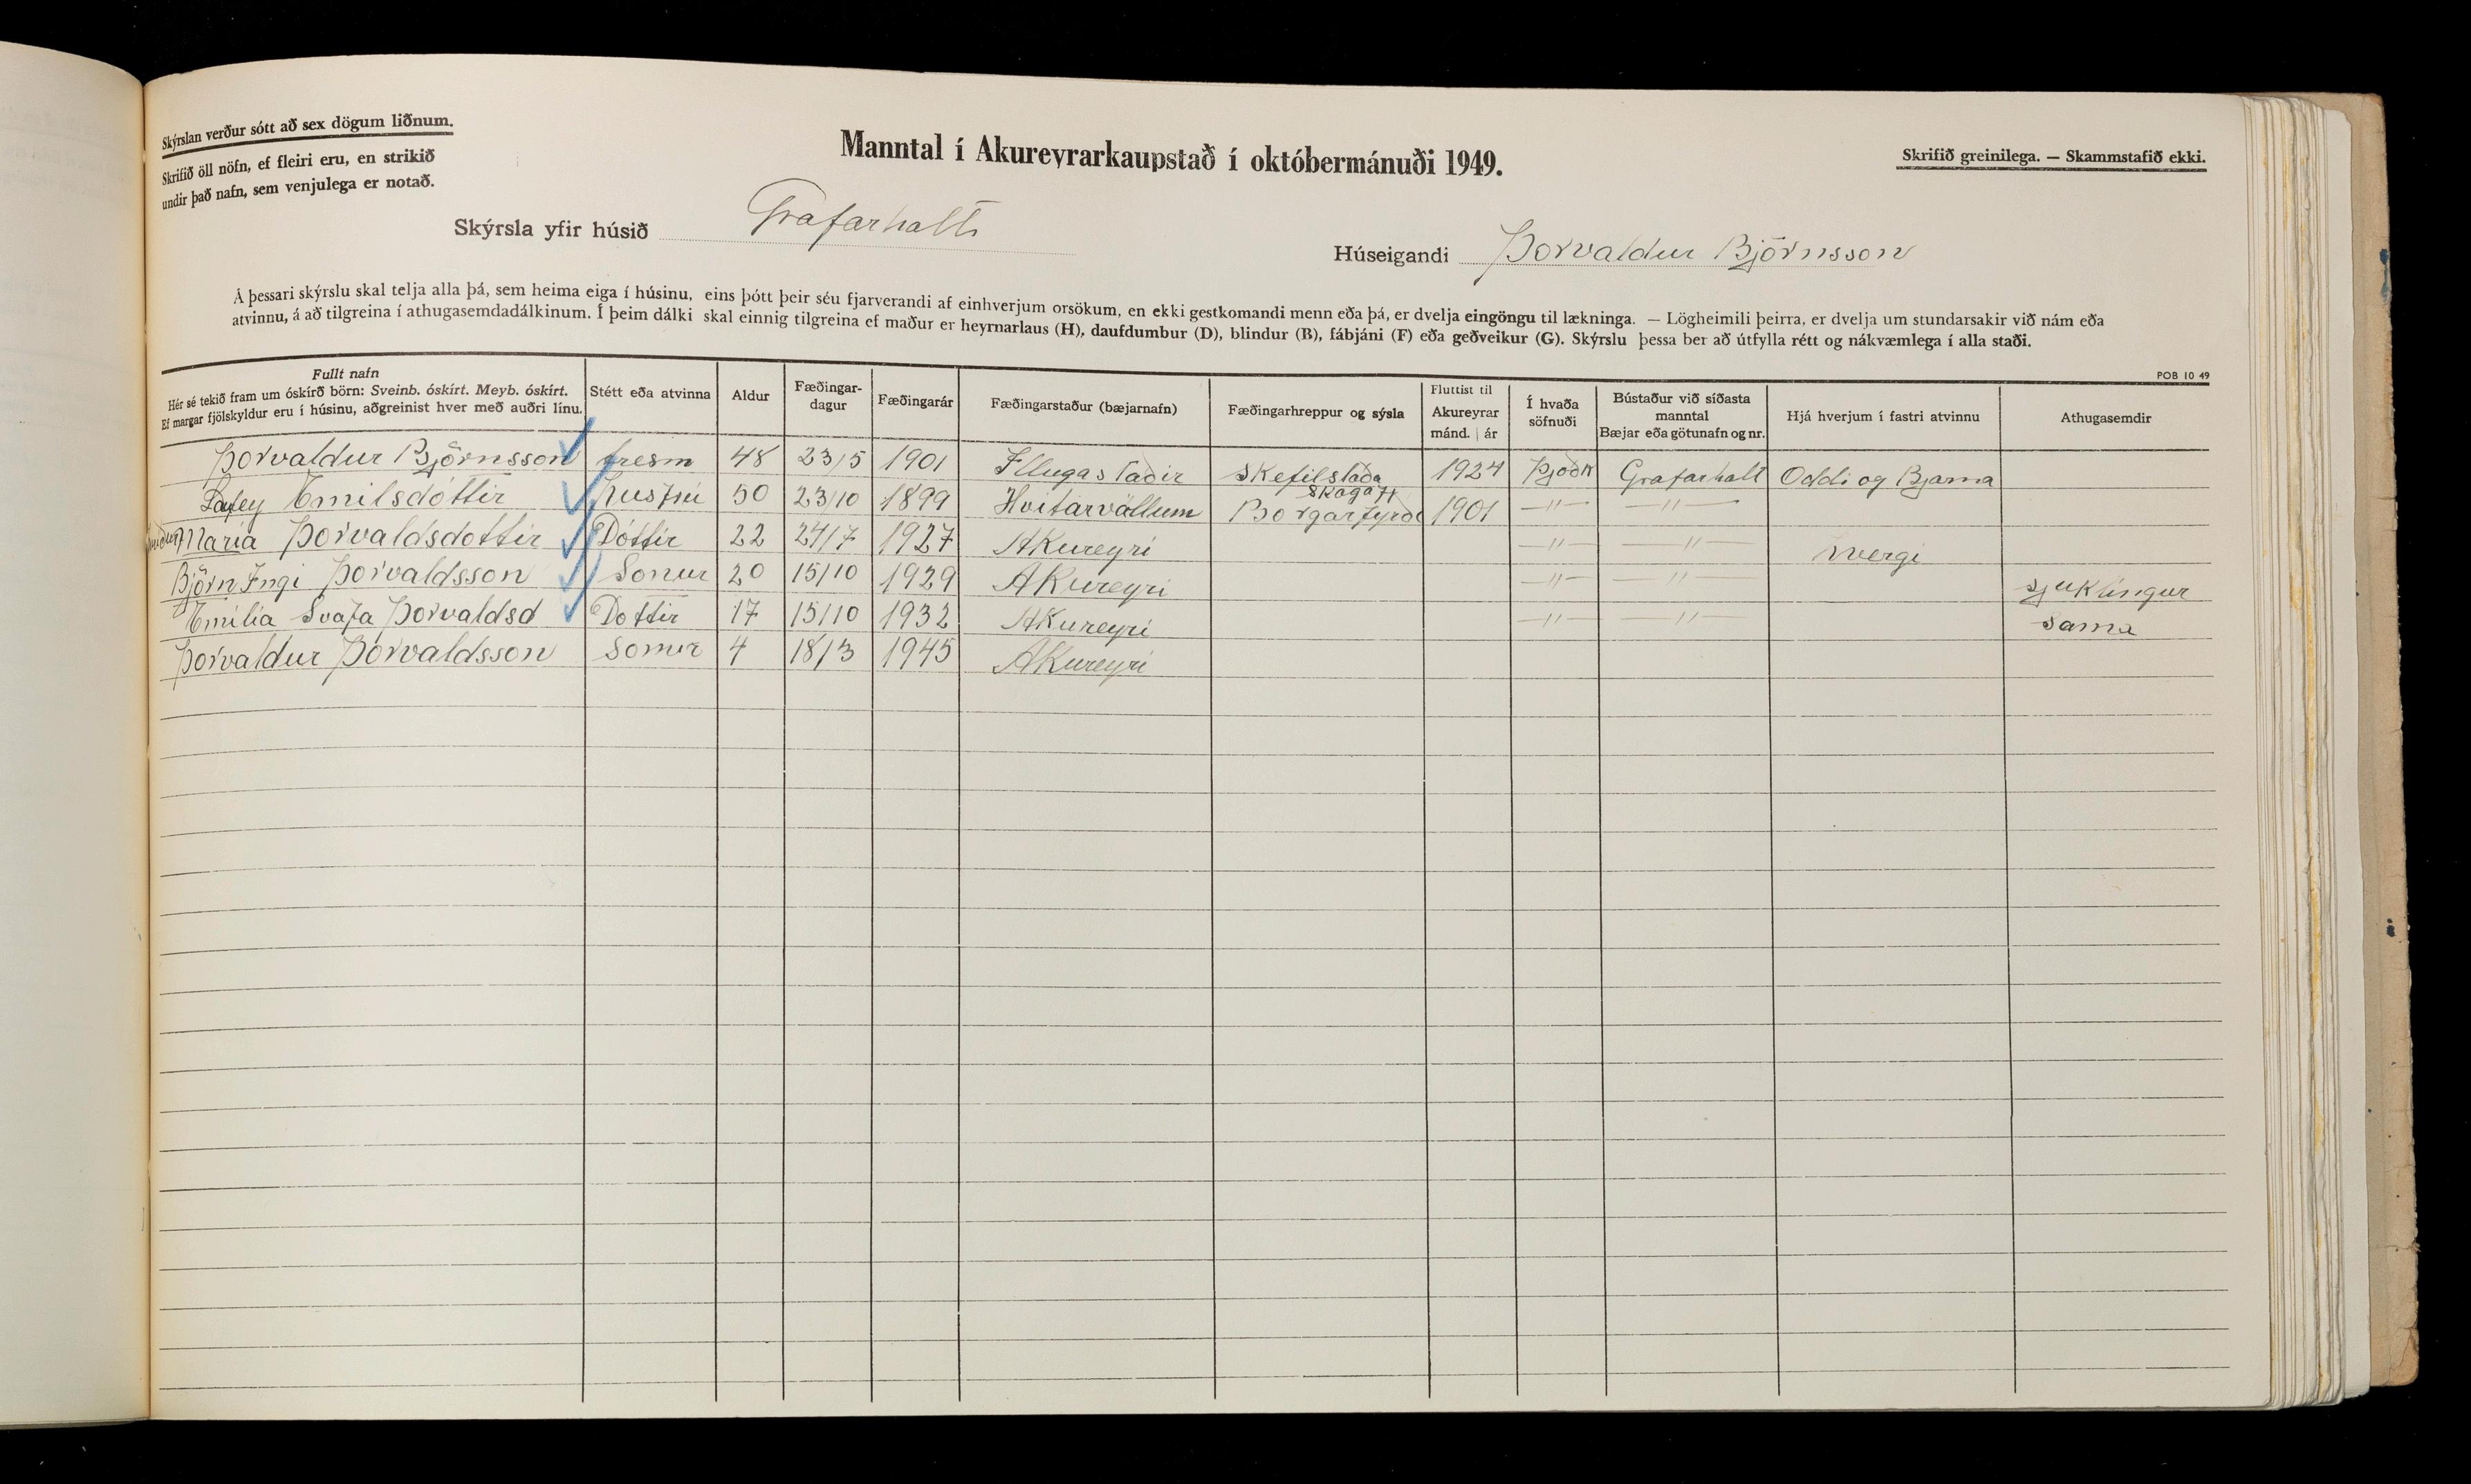 Skýrslan verður sótt að sex dögum liðnum.
Skrifið öll nöfn, ef fleiri eru, en strikið
undir það nafn, sem venjulega er notað.
Manntal í Akureyrarkaupstað í októbermánuði 1949.
Skrifið greinilega. — Skammstafið ekki.
Skýrsla yfir húsið Grafarholt
Húseigandi Þorvaldur Björnsson
Á þessari skýrslu skal telja alla þá, sem heima eiga í húsinu, eins þótt þeir séu fjarverandi af einhverjum orsökum, en ekki gestkomandi menn eða þá, er dvelja eingöngu til lækninga. — Lögheimili þeirra, er dvelja um stundarsakir við nám eða
atvinnu, á að tilgreina í athugasemdadálkinum. Í þeim dálki skal einnig tilgreina ef maður er heyrnarlaus (H), daufdumbur (D), blindur (B), fábjáni (F) eða geðveikur (G). Skýrslu þessa ber að útfylla rétt og nákvæmlega í alla staði.
POB 10 49
Fullt nafn
Hér sé tekið fram um óskírð börn: Sveinb. óskírt. Meyb. óskírt.
Ef margar fjölskyldur eru í húsinu, aðgreinist hver með auðri línu.
Stétt eða atvinna
Aldur
Fæðingar-
dagur
Fæðingarár
Fæðingarstaður (bæjarnafn)
Fæðingarhreppur og sýsla
Fluttist til
Akureyrar
mánd. | ár
Í hvaða
söfnuði
Bústaður við síðasta
manntal
Bæjar eða götunafn og nr.
Hjá hverjum í fastri atvinnu
Athugasemdir
Þorvaldur Björnsson tresm 48 23/5 1901 Illugastaðir Skefilstaða Skagafj 1924 Þjóðk Grafarholt Oddi og Bjarna
Laufey Emilsdóttir husfrú 50 23/10 1899 Hvitárvöllum Borgarfyrði 1901 —"— —"—
María Þorvaldsdottir Dóttir 22 24/7 1927 Akureyri —"— —"— hvergi
Björn Ingi Þorvaldsson Sonur 20 15/10 1929 Akureyri —"— —"— sjuklingur
Emilía Svafa Þorvaldsd Dottir 17 15/10 1932 Akureyri —"— —"— Sama
Þorvaldur Þorvaldsson Sonur 4 18/3 1945 Akureyri